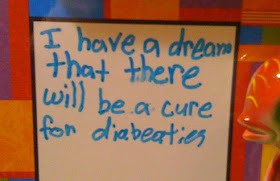 I have a dream
that there
will be a cure
for diabeaties